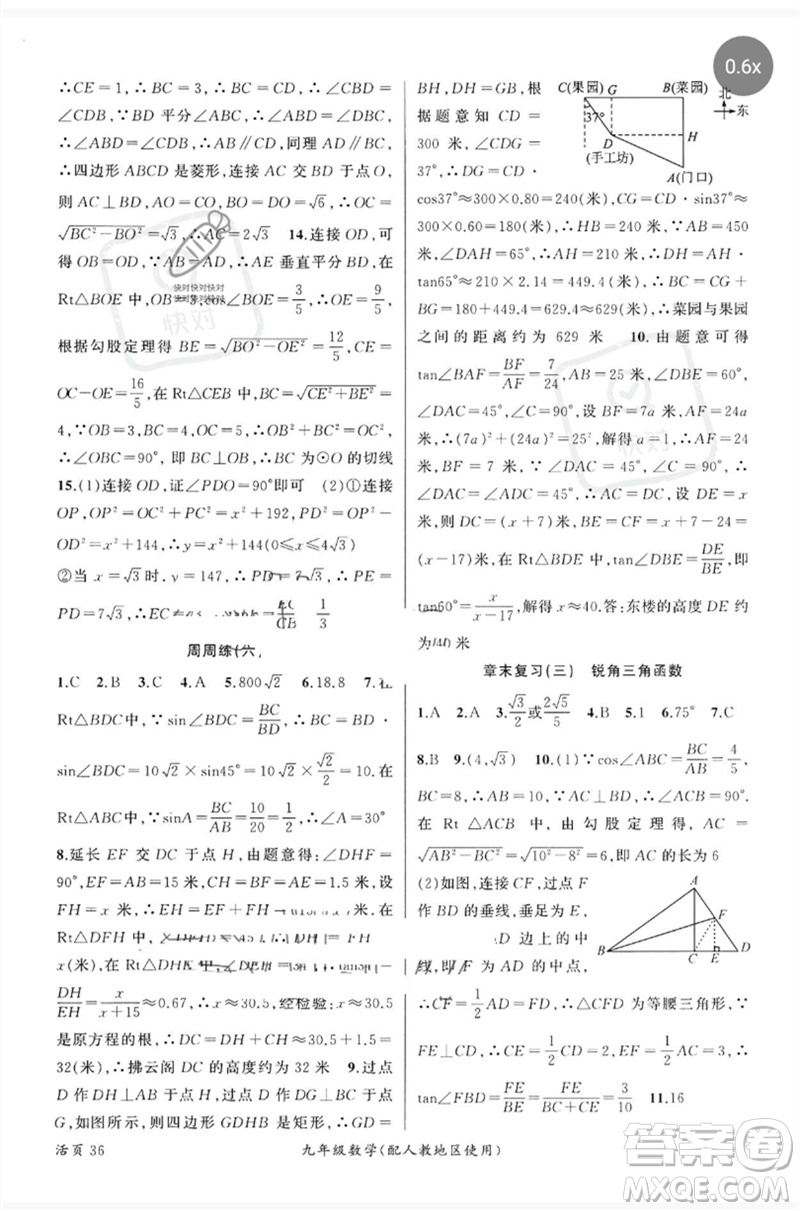 0.6x
∴CE=1,∴BC=3,∴BC=CD,∴∠CBD=
∠CDB,∵BD平分∠ABC,∴∠ABD=∠CBD,
∴∠ABD=∠CDB,∴AB∥CD,同理AD∥BC,
∴四边形ABCD是菱形,连接AC交BD于点O,
则AC⊥BD,AO=CO,BO=√6,∴CO=
√(BC²-BO²)=√3,∴AC=2√3 14.连接OD,可
得OB=OD,∵AB=AD,∴AE垂直平分BD,在
Rt△BOE中,OB=3, =3/5,∴OE=9/5,
根据勾股定理得BE=√(BO²-OE²)=12/5,CE=
OC-OE=16/5,在Rt△CEB中,BC=√(CE²+BE²)=
4,∵OB=3,BC=4,OC=5,∴OB²+BC²=OC²,
∴∠OBC=90°,即BC⊥OB,∴BC为⊙O的切线
15.(1)连接OD,证∠PDO=90°即可 (2)①连接
OP,OP²=OC²+PC²=x²+192,PD²=OP²-
OD²=x²+144,∴y=x²+144(0≤x≤4√3)
②当x=√3时,y=147,∴PD=7√3,∴PE=
PD=7√3,∴EC= 1/3
周周练(六)
1.C 2.B 3.C 4.A 5.800√2 6.18.8 7.在
Rt△BDC中,∵sin∠BDC=BC/BD,∴BC=BD·
sin∠BDC=10√2×sin45°=10√2×√2/2=10,在
Rt△ABC中,∵sinA=BC/AB=10/20=1/2,∴∠A=30°
8.延长EF交DC于点H,由题意得:∠DHF=
90°,EF=AB=15米,CH=BF=AE=1.5米,设
FH=x米,∴EH=EF+FH=
Rt△DFH中,
x(米),在Rt△DHE中,
DH/EH=x/(x+15)≈0.67,∴x≈30.5,经检验:x≈30.5
是原方程的根,∴DC=DH+CH≈30.5+1.5=
32(米),∴拂云阁DC的高度约为32米 9.过点
D作DH⊥AB于点H,过点D作DG⊥BC于点
G,如图所示,则四边形GDHB是矩形,∴GD=
BH,DH=GB,根
据题意知CD=
300米,∠CDG=
37°,∴DG=CD·
C(果园) G B(菜园) 北 东
37° D H
(手工坊) A(门口)
cos37°≈300×0.80=240(米),CG=CD·sin37°
≈300×0.60=180(米),∴HB=240米,∵AB=450
米,∠DAH=65°,∴AH=210米,∴DH=AH·
tan65°≈210×2.14=449.4(米),∴BC=CG+
BG≈180+449.4=629.4≈629(米),∴菜园与果园
之间的距离约为629米 10.由题意可得
tan∠BAF=BF/AF=7/24,AB=25米,∠DBE=60°,
∠DAC=45°,∠C=90°,设BF=7a米,AF=24a
米,∴(7a)²+(24a)²=25²,解得a=1,∴AF=24
米,BF=7米,∵∠DAC=45°,∠C=90°,∴∠DAC=
∠ADC=45°,∴AC=DC,设DE=x米,则
DC=(x+7)米,BE=CF=x+7-24=
(x-17)米,在Rt△BDE中,tan∠DBE=DE/BE,即
tan60°=x/(x-17),解得x≈40.答:东楼的高度DE约
为40米
章末复习(三) 锐角三角函数
1.A 2.A 3.√3/2或2√5/5 4.B 5.1 6.75° 7.C
8.B 9.(4,√3) 10.(1)∵cos∠ABC=BC/AB=4/5,
BC=8,∴AB=10,∵AC⊥BD,∴∠ACB=90°,
在Rt△ACB中,由勾股定理得,AC=
√(AB²-BC²)=√(10²-8²)=6,即AC的长为6
(2)如图,连接CF,过点F
作BD的垂线,垂足为E,
D边上的中
F为AD的中点,
A F B C E D
∴CF=1/2AD=FD,∴△CFD为等腰三角形,∵
FE⊥CD,∴CE=1/2CD=1/2
tan∠FBD=FE/BE=FE/(BC+CE)= √3/6 11.16
活页 36
九年级数学(配人教地区使用)
快对快对快对
快对
快对
作业答案网
MMKAO.COM